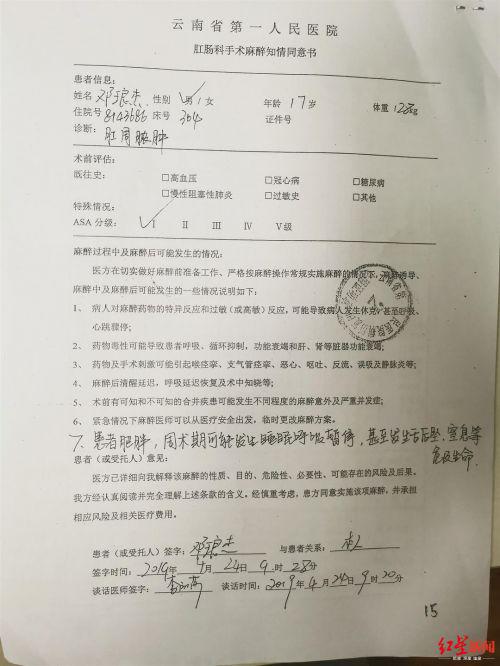 云南省第一人民医院
肛肠科手术麻醉知情同意书
患者信息:
姓名 邓琅杰 性别 ✓男/女 年龄 17岁 体重 128kg
住院号 8143686 床号 364 证件号
诊断: 肛周脓肿
术前评估:
既往史: □高血压 □冠心病 □糖尿病
□慢性阻塞性肺炎 □过敏史 □其他
特殊情况:
ASA 分级: ✓Ⅰ Ⅱ Ⅲ Ⅳ Ⅴ级
麻醉过程中及麻醉后可能发生的情况:
医方在切实做好麻醉前准备工作、严格按麻醉操作常规实施麻醉的情况下,麻醉诱导、
麻醉中及麻醉后可能发生的一些情况说明如下:
1、 病人对麻醉药物的特异反应和过敏(或高敏)反应,可能导致病人发生休克,甚至呼吸、
心跳骤停;
2、 药物毒性可能导致患者呼吸、循环抑制,功能衰竭和肝、肾等脏器功能衰竭;
3、 药物及手术刺激可能引起喉痉挛、支气管痉挛、恶心、呕吐、反流、误吸及静脉炎等;
4、 麻醉后清醒延迟,呼吸延迟恢复及术中知晓等;
5、 术前有可知和不可知的合并疾患可能发生不同程度的麻醉意外及严重并发症;
6、 紧急情况下麻醉医师可以从医疗安全出发,临时更改麻醉方案。
7、患者肥胖,围术期可能发生睡眠呼吸暂停,甚至发生舌后坠,窒息等
危及生命.
患者(或受托人)意见:
医方已详细向我解释该麻醉的性质、目的、危险性、必要性、可能存在的风险及后果。
我方经认真阅读并完全理解上述条款的含义。经慎重考虑,患方同意实施该项麻醉,并承担
相应风险及相关医疗费用。
患者(或受托人)签字: 邓琅杰 与患者关系: 本人
签字时间: 2019年 4月 24日 9时 28分
谈话医师签字: 谈话时间: 2019年 4月 24日 9时 20分
15
红星新闻